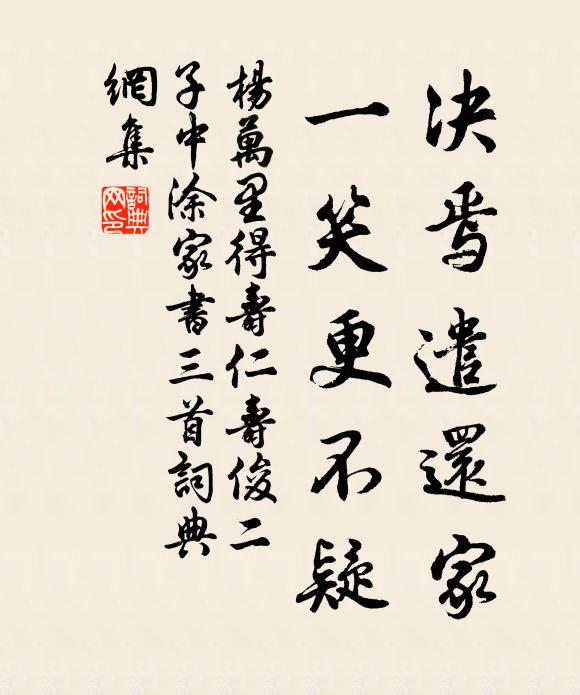 决焉遣還家
一笑更不疑
楊萬里得壽仁壽俊二
子中涂家書三首詞典
網集
詞典網印